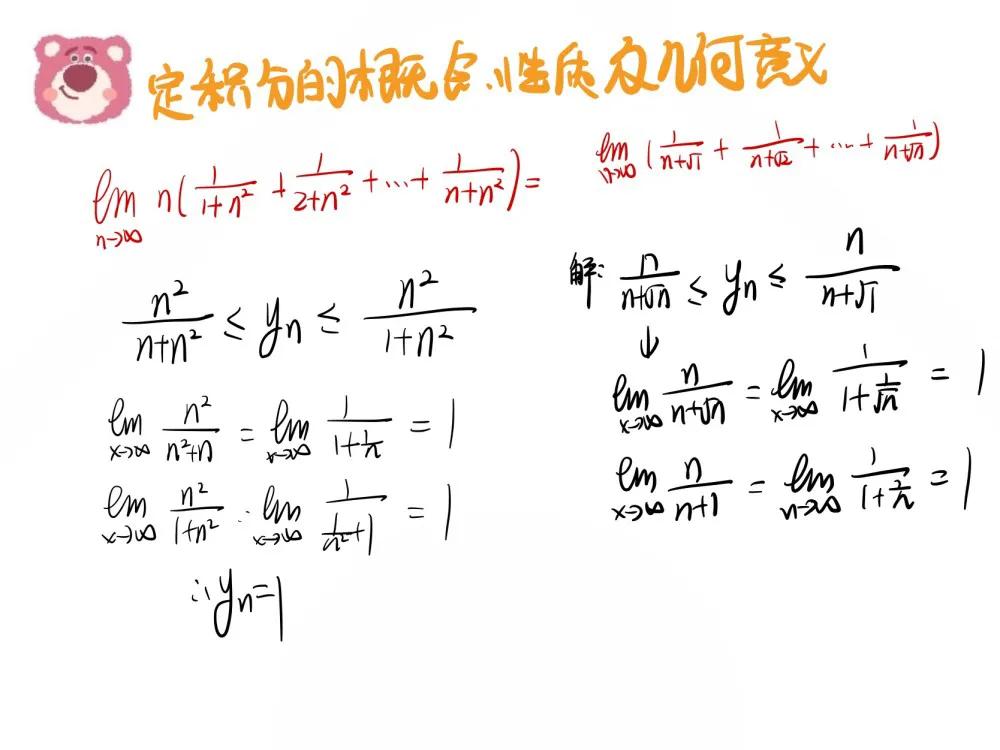 定积分的概念、性质及几何意义
lim n→∞ n(1/(1+n²) + 1/(2+n²) + ... + 1/(n+n²)) =
n²/(n+n²) ≤ yn ≤ n²/(1+n²)
lim x→∞ n²/(n²+n) = lim x→∞ 1/(1+1/n) = 1
lim x→∞ n²/(1+n²) ∴ lim x→∞ 1/(1/n²+1) = 1
∴ yn=1
lim n→∞ (1/(n+√1) + 1/(n+√2) + ... + 1/(n+√n))
解: n/(n+√n) ≤ yn ≤ n/(n+√1)
↓
lim x→∞ n/(n+√n) = lim x→∞ 1/(1+1/√n) = 1
lim x→∞ n/(n+1) = lim n→∞ 1/(1+ /n) = 1